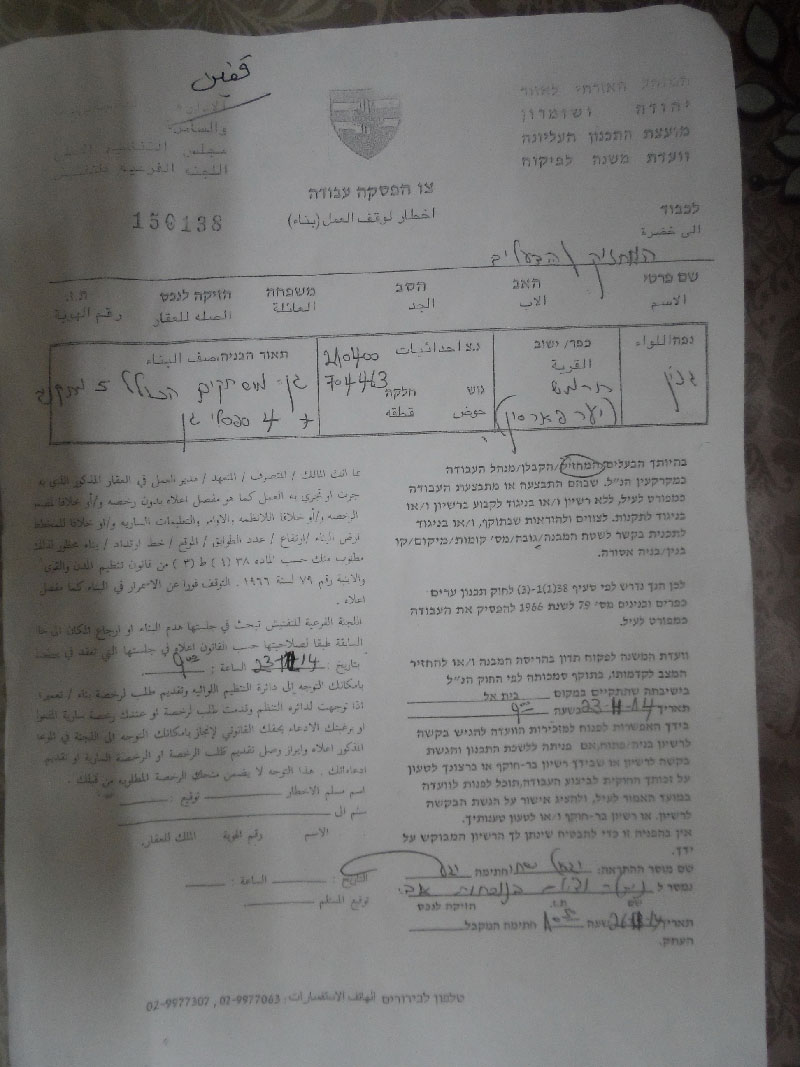 قفين
המנהל האזרחי לאזור
יהודה ושומרון
מועצת התכנון העליונה
וועדת משנה לפיקוח
والسامرة
مجلس التنظيم الاعلى
اللجنة الفرعية للتفتيش
צו הפסקת עבודה
اخطار لوقف العمل (بناء)
150138
לכבוד
الى حضرة
המחזיק / הבעלים
שם פרטי האב הסב משפחה הזיקה לנכס ת.ז.
الاسم الاب الجد العائلة الصله للعقار رقم الهوية
נפה/הלואה
ג'נין
כפר/ ישוב
القرية
נ.צ אחדאיות 210400
704463
גוש חלקה
حوض قطعه
תאור הבניה/وصف البناء
גן משחקים הכולל 5 מתקנים
+ 4 ספסלי גן
בהיותך הבעלים/המחזיק/הקבלן/מנהל העבודה
במקרקעין הנ"ל, שבהם התבצעה או מתבצעת העבודה
כמפורט לעיל, ללא רשיון ו/או בניגוד לקבוע ברשיון ו/או
בניגוד לתקנות, לצווים ולהוראות שבתוקף, ו/או בניגוד
לתכנית בקשר לשטח המבנה/גובה/מס' קומות/מיקום/קו
בנין/בניה אסורה.
לכן הנך נדרש לפי סעיף 38(1)-(3) לחוק תכנון ערים
כפרים ובנינים מס' 79 לשנת 1966 להפסיק את העבודה
כמפורט לעיל.
וועדת המשנה לפקוח תדון בהריסת המבנה ו/או להחזיר
המצב לקדמותו, בתוקף סמכותה לפי החוק הנ"ל
בישיבתה שתתקיים במקום בית אל
תאריך 23-11-14 בשעה 9:00
בידך האפשרות לפנות למזכירות הוועדה להגיש בקשה
לרשיון בניה/פתוח, אם פניתה ללשכת התכנון והגשת
בקשה לרשיון או שבידך רשיון בר-תוקף או ברצונך לטעון
על זכותך החוקית לביצוע העבודה, תוכל לפנות לוועדה
במועד האמור לעיל, ולהציג אישור על הגשת הבקשה
לרשיון, או רשיון בר-תוקף ו/או לטעון טענותיך.
אין בהפניה זו כדי להבטיח שינתן לך הרשיון המבוקש על
ידך.
שם מוסר ההתראה: חתימה
נמסר ל
שם ת.ז. הזיקה לנכס
תאריך שעה חתימת המקבל
העתק.
بما انك المالك / المتصرف / المتعهد / مدير العمل في العقار المذكور الذي به
جرت او تجري به العمل كما هو مفصل اعلاه بدون رخصه و/أو خلافا
الرخصه و/أو خلافا للانظمه، الاوامر والتعليمات الساريه و/او خلافا للمخطط
البناء /ارتفاع / عدد الطوابق / الموقع / خط ارتداد / بناء محظور لذلك
مطلوب منك حسب الماده ٣٨ (١) ط (٣) من قانون تنظيم المدن والقرى
والابنية رقم ٧٩ لسنة ١٩٦٦ . التوقف فورا عن الاستمرار في البناء كما مفصل
اعلاه .
اللجنة الفرعية للتفتيش تبحث في جلستها هدم البناء او ارجاع المكان الى
السابقة طبقا لصلاحيتها حسب القانون اعلاه في جلستها التي تعقد في
بتاريخ : 23-11-14 الساعة : 9:00
بامكانك التوجه إلى دائرة التنظيم اللوائيه وتقديم طلب لرخصة بناء /
اذا توجهت لدائره التنظم وقدمت طلب لرخصة او عندك رخصة سارية المفعول
او برغبتك الادعاء بحقك القانوني لإنجاز بامكانك التوجه الى اللجنة في
المذكور اعلاه وابراز وصل تقديم طلب الرخصة او الرخصة السارية او تقديم
ادعاءاتك . هذا التوجه لا يضمن منحك الرخصة المطلوبه من قبلك .
اسم مسلم الاخطار توقيع :
سلم الى
الاسم رقم الهوية المالك للعقار.
التاريخ : الساعة :
توقيع المستلم
טלפון לבירורים الهاتف الاستفسارات : 02-9977063 , 02-9977307